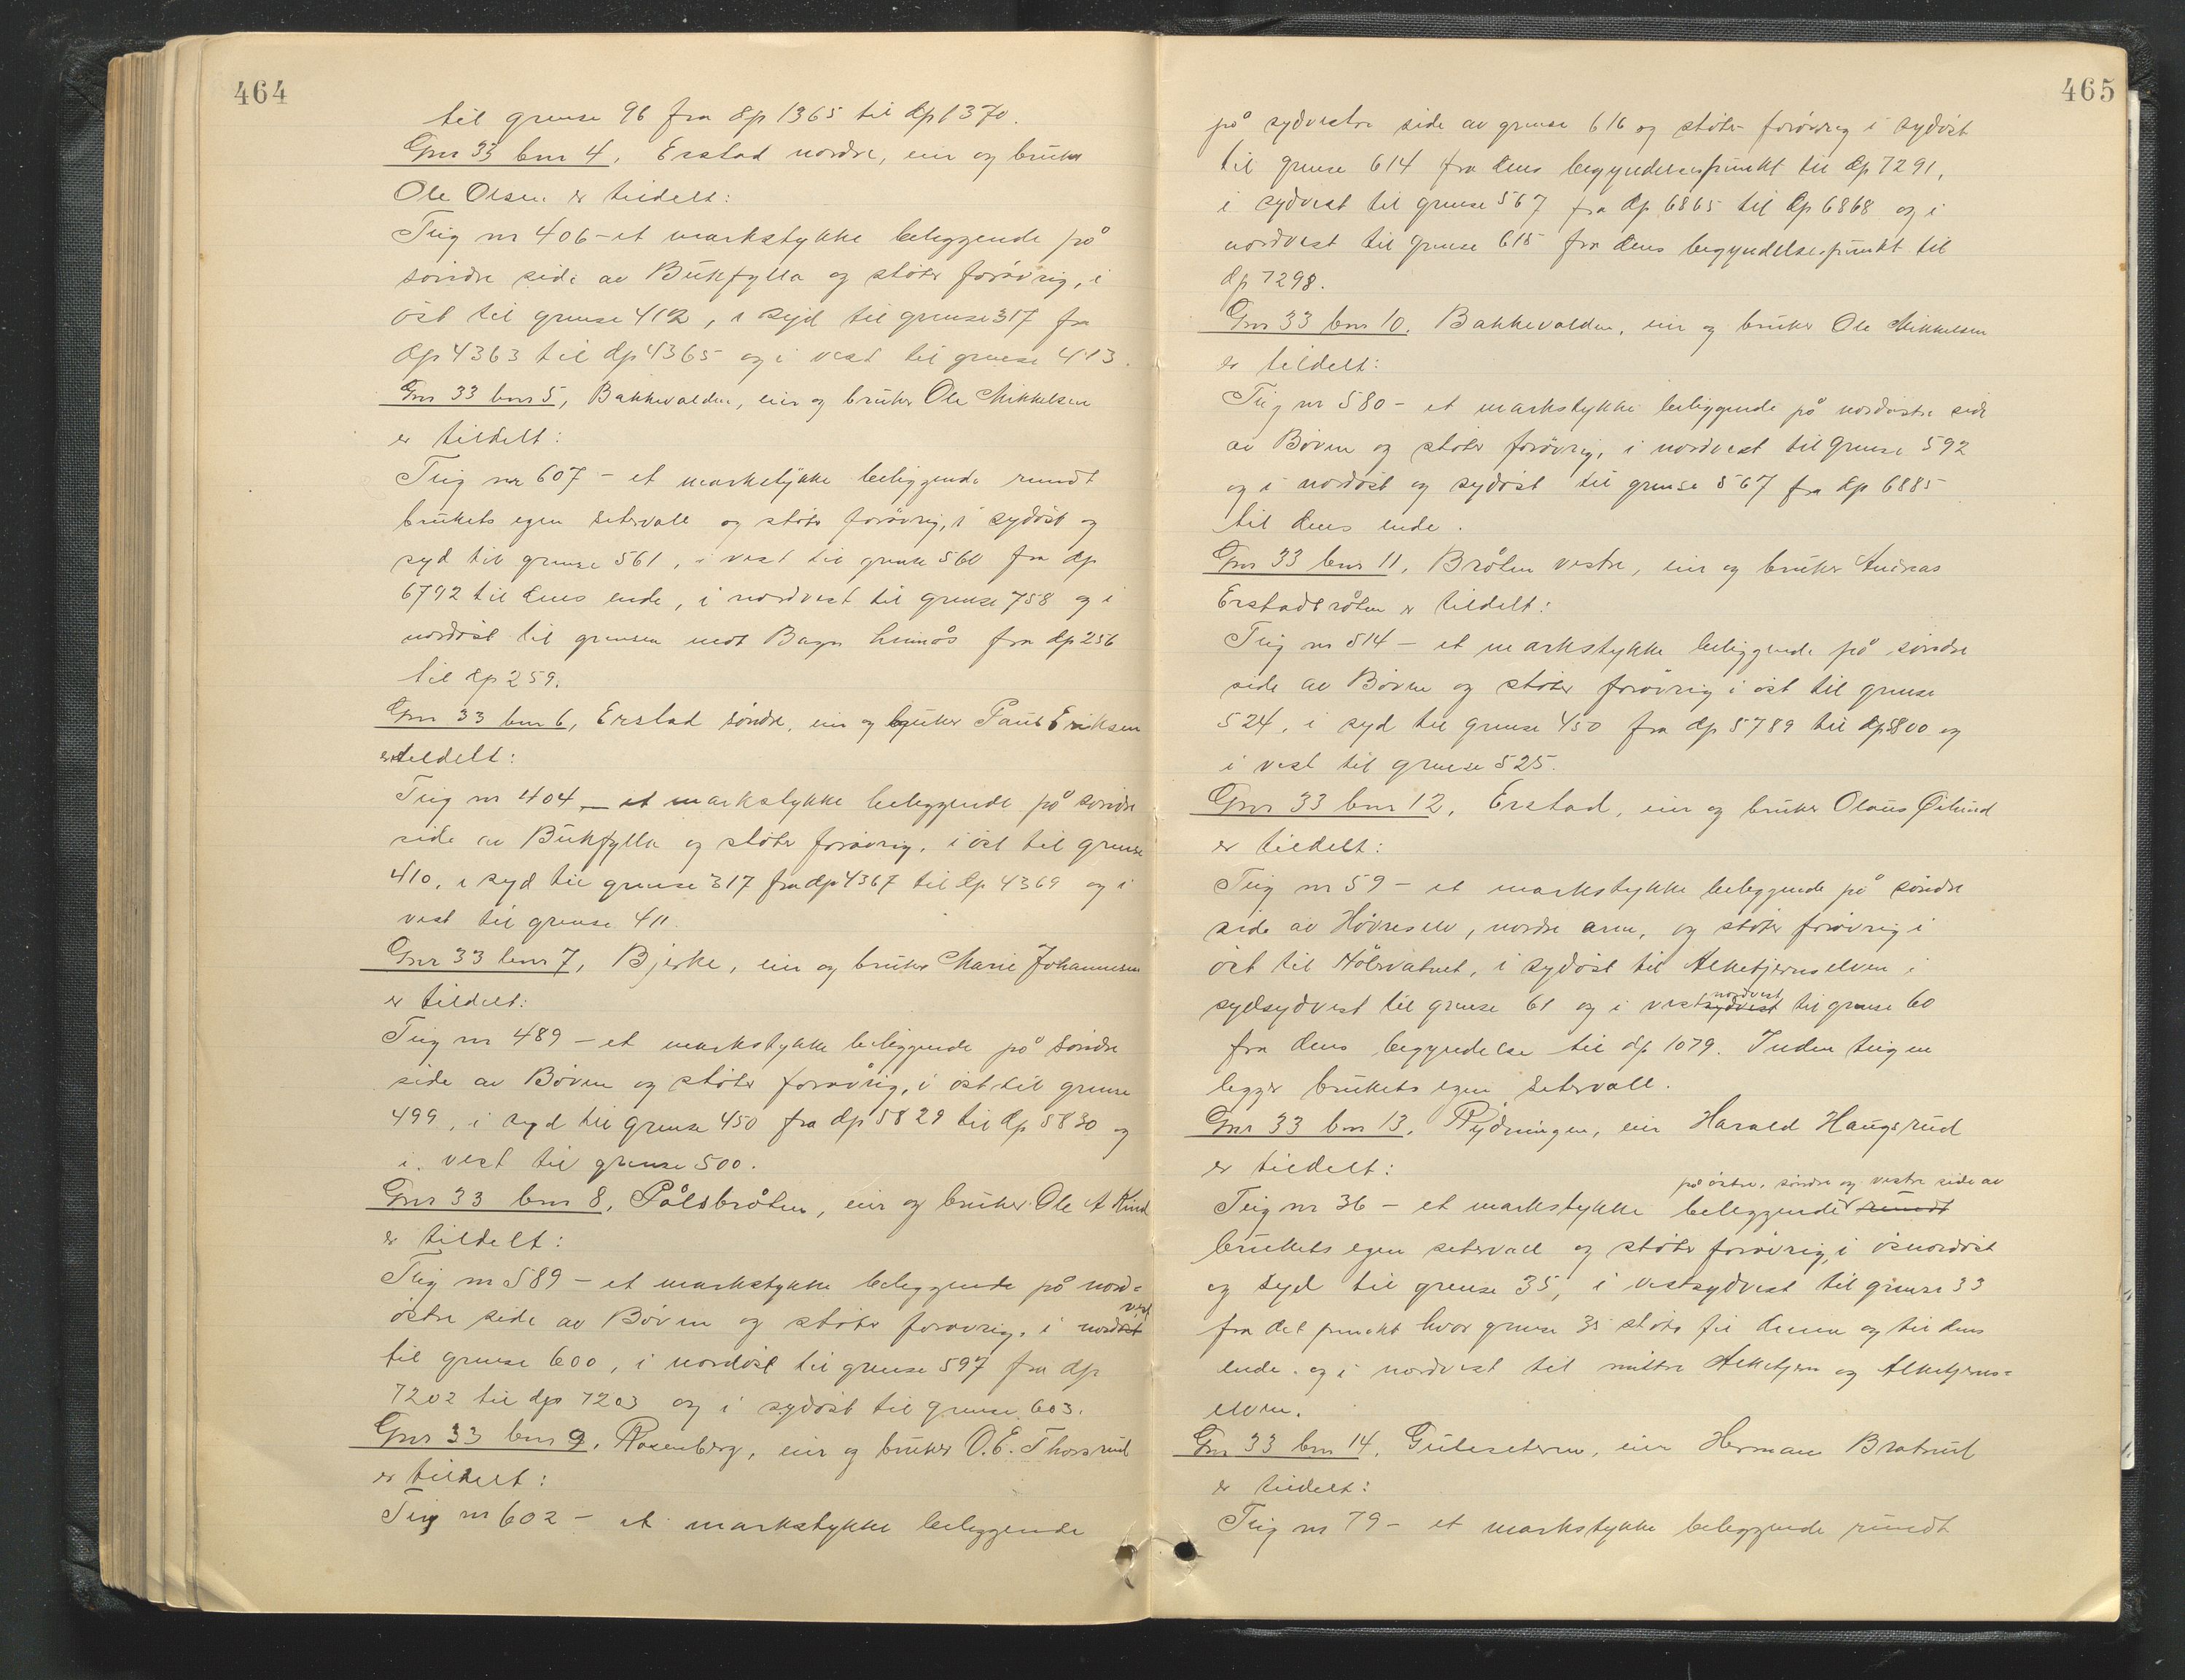 464
til grense 96 fra dp 1365 til dp 1370.
Gnr 33 bnr 4, Erstad nordre, eier og bruker
Ole Olsen er tildelt:
Teig nr 406 - et markstykke beliggende på
søndre side av Bukfylla og støter forøvrig, i
øst til grense 412, i syd til grense 317 fra
dp 4363 til dp 4365 og i vest til grense 413.
Gnr 33 bnr 5, Bakkevolden, eier og bruker Ole Mikkelsen
er tildelt:
Teig nr 607 - et markstykke beliggende rundt
brukets egen setervoll og støter forøvrig, i sydøst og
syd til grense 561, i vest til grense 560 fra dp
6792 til dens ende, i nordvest til grense 758 og i
nordøst til grensen mot Bagn Lunnås fra dp 256
til dp 259.
Gnr 33 bnr 6, Erstad søndre, eier og bruker Paul Eriksen
er tildelt:
Teig nr 404 - et markstykke beliggende på søndre
side av Bukfylla og støter forøvrig, i øst til grense
410, i syd til grense 317 fra dp 4367 til dp 4369 og i
vest til grense 411.
Gnr 33 bnr 7, Bjerke, eier og bruker Marie Johannesen
er tildelt:
Teig nr 489 - et markstykke beliggende på søndre
side av Bøvra og støter forøvrig, i øst til grense
499, i syd til grense 450 fra dp 5829 til dp 5830 og
i vest til grense 500.
Gnr 33 bnr 8, Pålsbråten, eier og bruker Ole A Kind
er tildelt:
Teig nr 589 - et markstykke beliggende på nord-
østre side av Bøvren og støter forøvrig, i nordøst vest
til grense 600, i nordøst til grense 597 fra dp
7202 til dp 7203 og i sydøst til grense 603.
Gnr 33 bnr 9, Rosenberg, eier og bruker O.E. Thorsrud
er tildelt:
Teig nr 602 - et markstykke beliggende
465
på sydvestre side av grense 616 og støter forøvrig i sydøst
til grense 614 fra dens begyndelsespunkt til dp 7291,
i sydvest til grense 567 fra dp 6865 til dp 6868 og i
nordvest til grense 615 fra dens begyndelsespunkt til
dp 7298.
Gnr 33 bnr 10. Bakkevolden, eier og bruker Ole Mikkelsen
er tildelt:
Teig nr 580 - et markstykke beliggende på nordøstre side
av Bøvren og støter forøvrig, i nordvest til grense 592
og i nordøst og sydøst til grense 567 fra dp 6885
til dens ende.
Gnr 33 bnr 11, Bråten vestre, eier og bruker Andreas
Erstadbråten er tildelt:
Teig nr 514 - et markstykke beliggende på søndre
side av Bøvren og støter forøvrig i øst til grense
524, i syd til grense 450 fra dp 5789 til dp 5800 og
i vest til grense 525.
Gnr 33 bnr 12, Erstad, eier og bruker Olaus Østlund
er tildelt:
Teig nr 59 - et markstykke beliggende på søndre
side av Høvreselv, nordre arm, og støter forøvrig i
øst til Nølsvatnet, i sydøst til Alketjernselven i
sydsydvest til grense 61 og i vestsydvest nordvest til grense 60
fra dens begyndelse til dp 1079. Inden teigen
ligger brukets egen setervoll.
Gnr 33 bnr 13, Rydningen, eier Harald Haugsrud
er tildelt:
på østre, søndre og vestre side av
Teig nr 36 - et markstykke beliggende rundt
brukets egen setervoll og støter forøvrig, i østnordøst
og syd til grense 35, i vestsydvest til grense 33
fra det punkt hvor grense 35 støter til denne og til dens
ende og i nordvest til midtre Alketjern og Alketjerns-
elven.
Gnr 33 bnr 14, Guleseteren, eier Herman Bratrud
er tildelt:
Teig nr 79 - et markstykke beliggende rundt